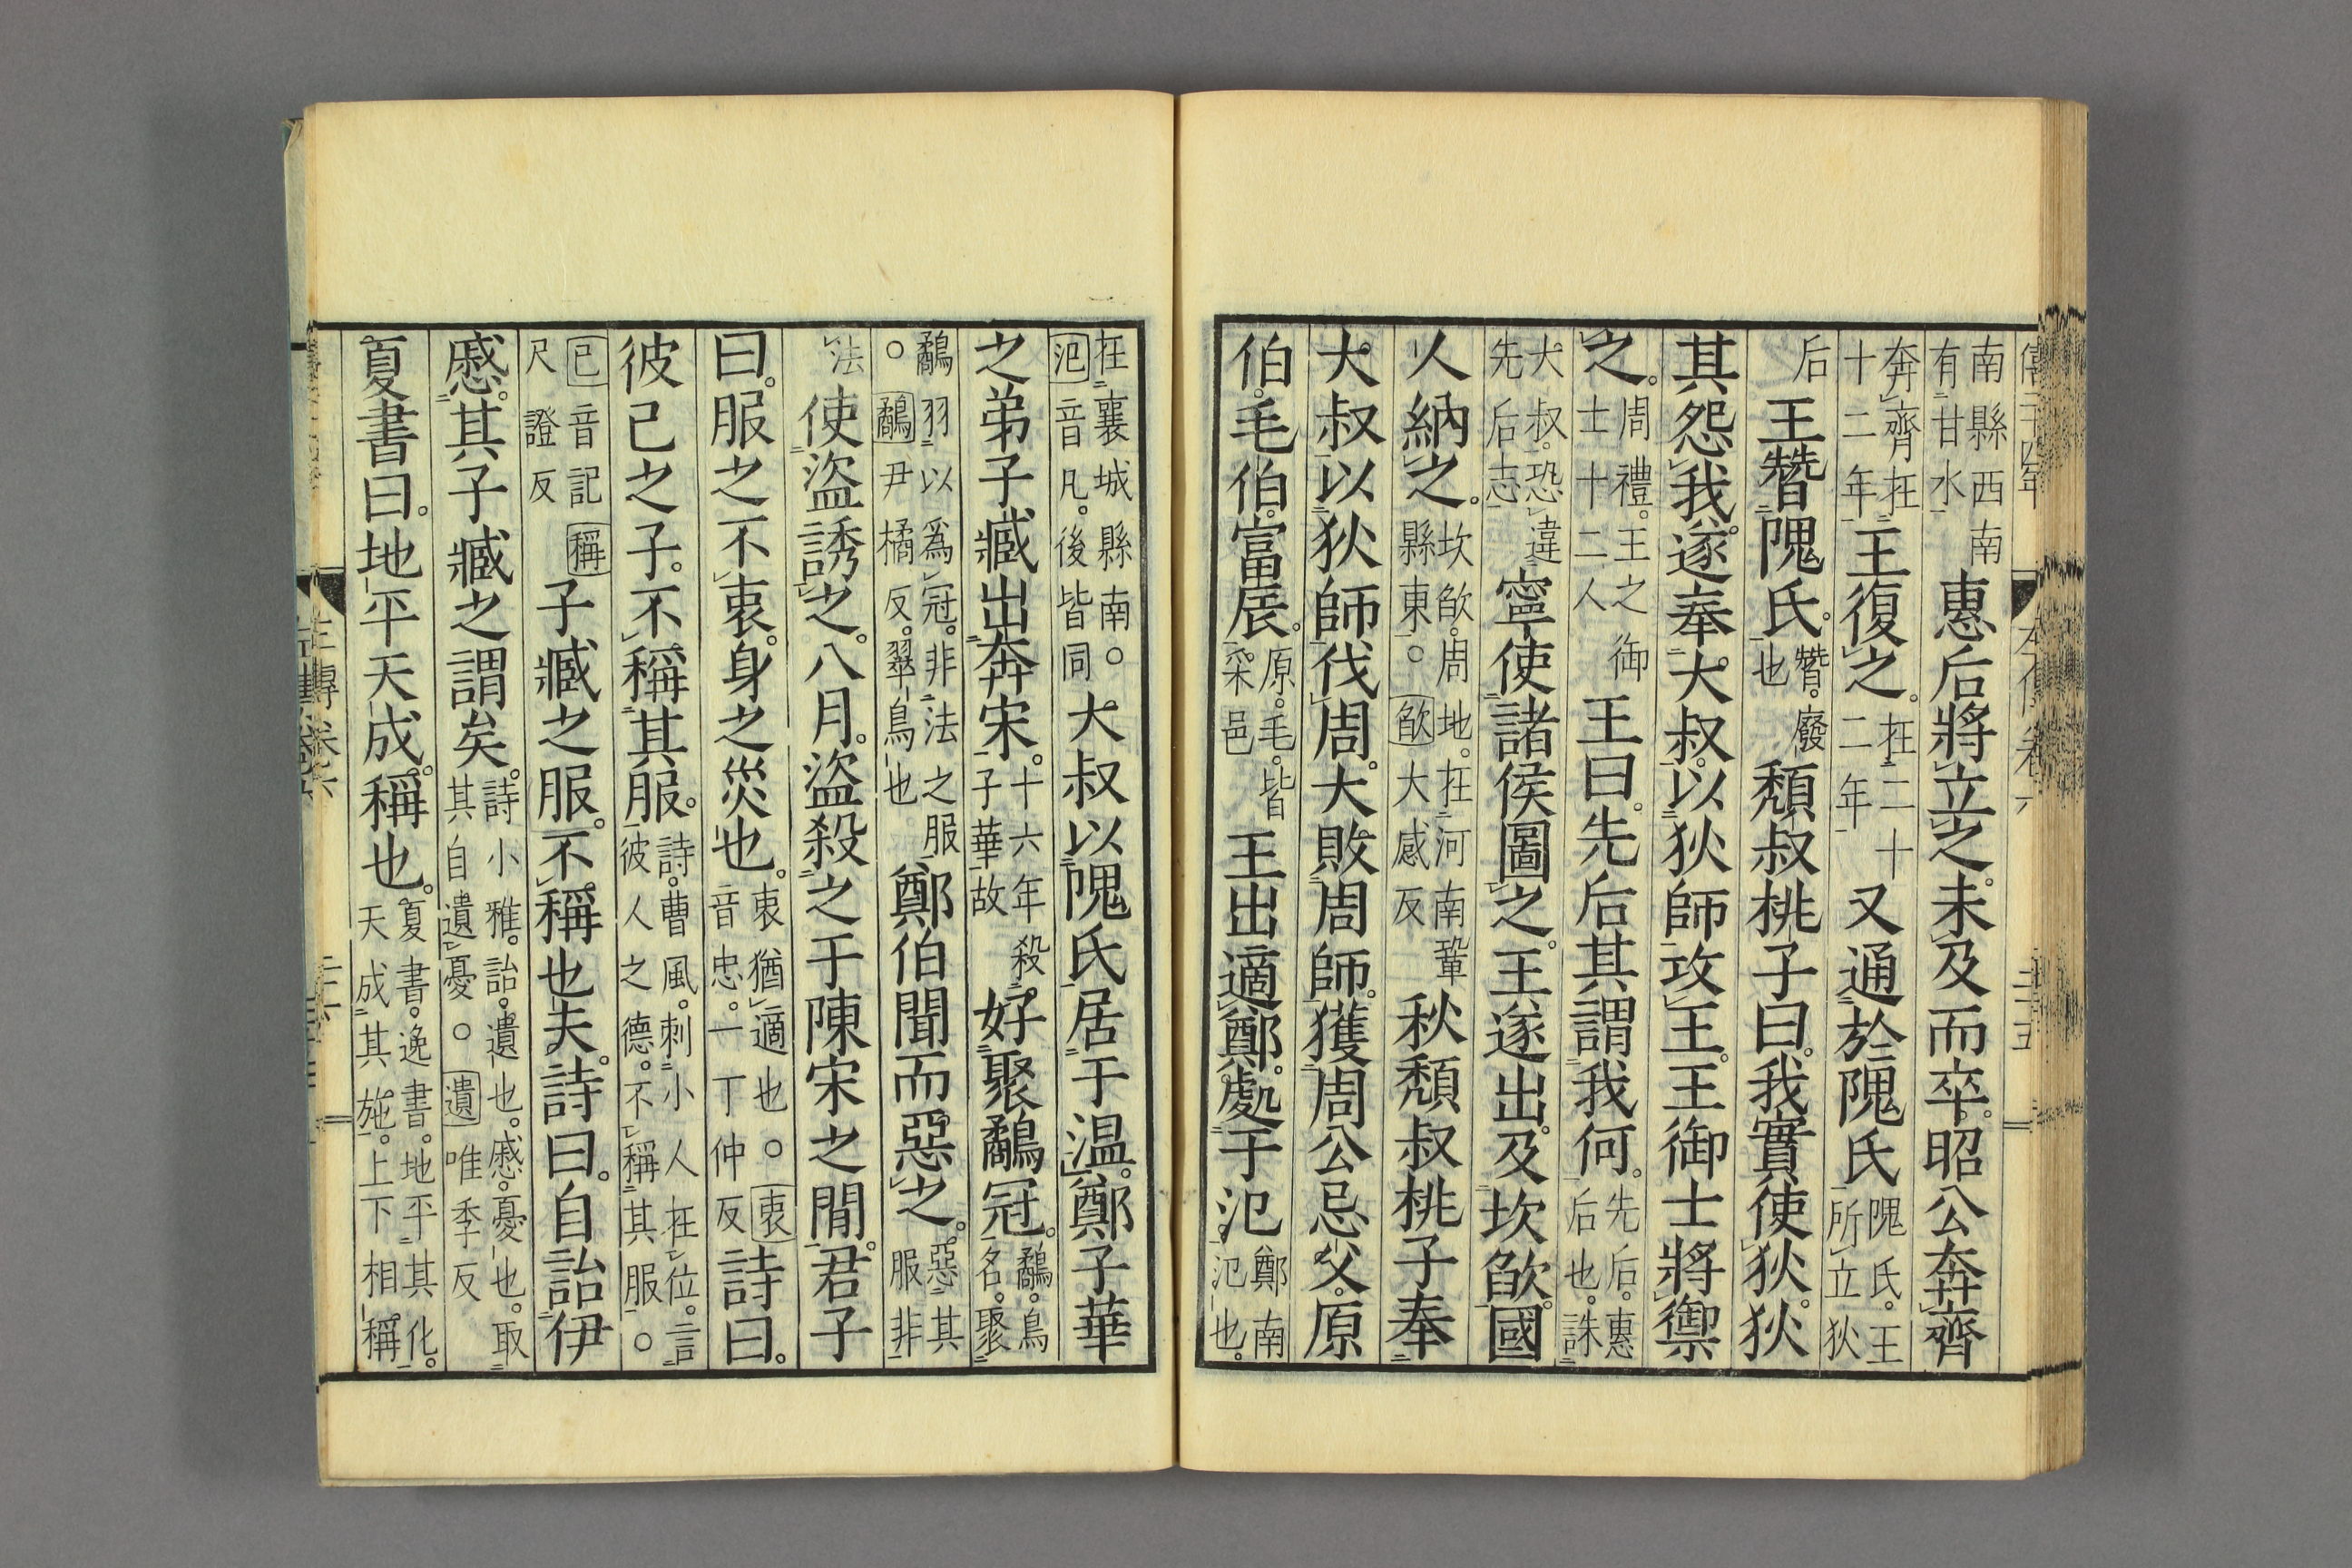 南縣西南有甘水惠后將立之未及而卒。昭公奔齊
奔齊在十二年王復之。在二十二年又通於隗氏隗氏。王所立狄
后王朁隗氏。朁。廢也頹叔桃子曰。我實使狄。狄
其怨我。遂奉大叔。以狄師攻王。王御士將禦
之。周禮。王之御士十二人王曰。先后其謂我何。先后。惠后也。誅
大叔。恐違先后志寧使諸侯圖之。王遂出。及坎欿。國
人納之。坎欿。周地。在河南鞏縣東。○欿大感反秋頹叔桃子奉
大叔以狄師伐周。大敗周師。獲周公忌父。原
伯。毛伯。富辰。原。毛。皆采邑王出適鄭。處于氾鄭南氾也。
在襄城縣南。○氾音凡。後皆同大叔以隗氏居于温。鄭子華
之弟子臧出奔宋。十六年殺子華故好聚鷸冠。鷸。鳥名。聚
鷸羽以爲冠。非法之服○鷸尹橘反。翠鳥也鄭伯聞而惡之。惡其服非
法使盜誘之。八月。盜殺之于陳宋之閒。君子
曰。服之不衷。身之災也。衷猶適也。○衷音忠。一丁仲反詩曰。
彼己之子。不稱其服。詩。曹風。刺小人在位。言彼人之德。不稱其服。○
己音記稱尺證反子臧之服。不稱也夫。詩曰。自詒伊
慼。其子臧之謂矣。詩小雅。詒。遺也。慼。憂也。取其自遺憂○遺唯季反
夏書曰。地平天成。稱也。夏書。逸書。地平其化。天成其施。上下相稱